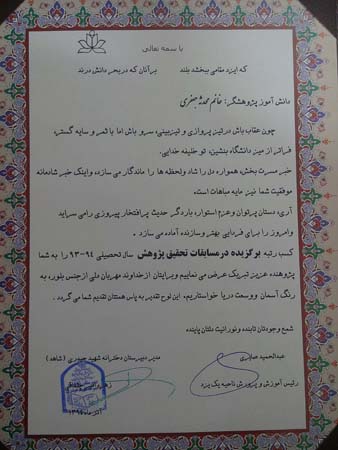 با سمه تعالی
که ایزد مقامی ببخشد بلند
بر آنان که در بحر دانش درند
دانش آموز پژوهشگر: خانم محدثه جعفری
چون عقاب باش در تیز پروازی و تیزبینی، سرو باش اما با ثمر و سایه گستر،
فراتر از میز دانشگاه بنشین، تو خلیفه خدایی.
خبر مسرت بخش، همواره دل را شاد و لحظه ها را ماندگار می سازد و اینک خبر شادمانه
موفقیت شما نیز مایه مباهات است.
آری، دستان پرتوان و عزم استوار، بار دگر حدیث پر افتخار پیروزی را می سراید
و امروز را برای فردایی بهتر و سازنده آماده می سازد .
کسب رتبه برگزیده در مسابقات تحقیق پژوهش سال تحصیلی ۹۴-۹۳ را به شما
پژوهنده عزیز تبریک عرض می نماییم و برایتان از خداوند مهربان دلی از جنس بلور، به
رنگ آسمان و وسعت دریا خواستاریم. این لوح تقدیر به پاس همتتان تقدیم شما می گردد .
شمع وجودتان تابنده و نورانیت دلتان پاینده
عبدالحمید
مدیر دبیرستان دخترانه شهید حیدری (شاهد)
رئیس آموزش و پرورش ناحیه یک یزد